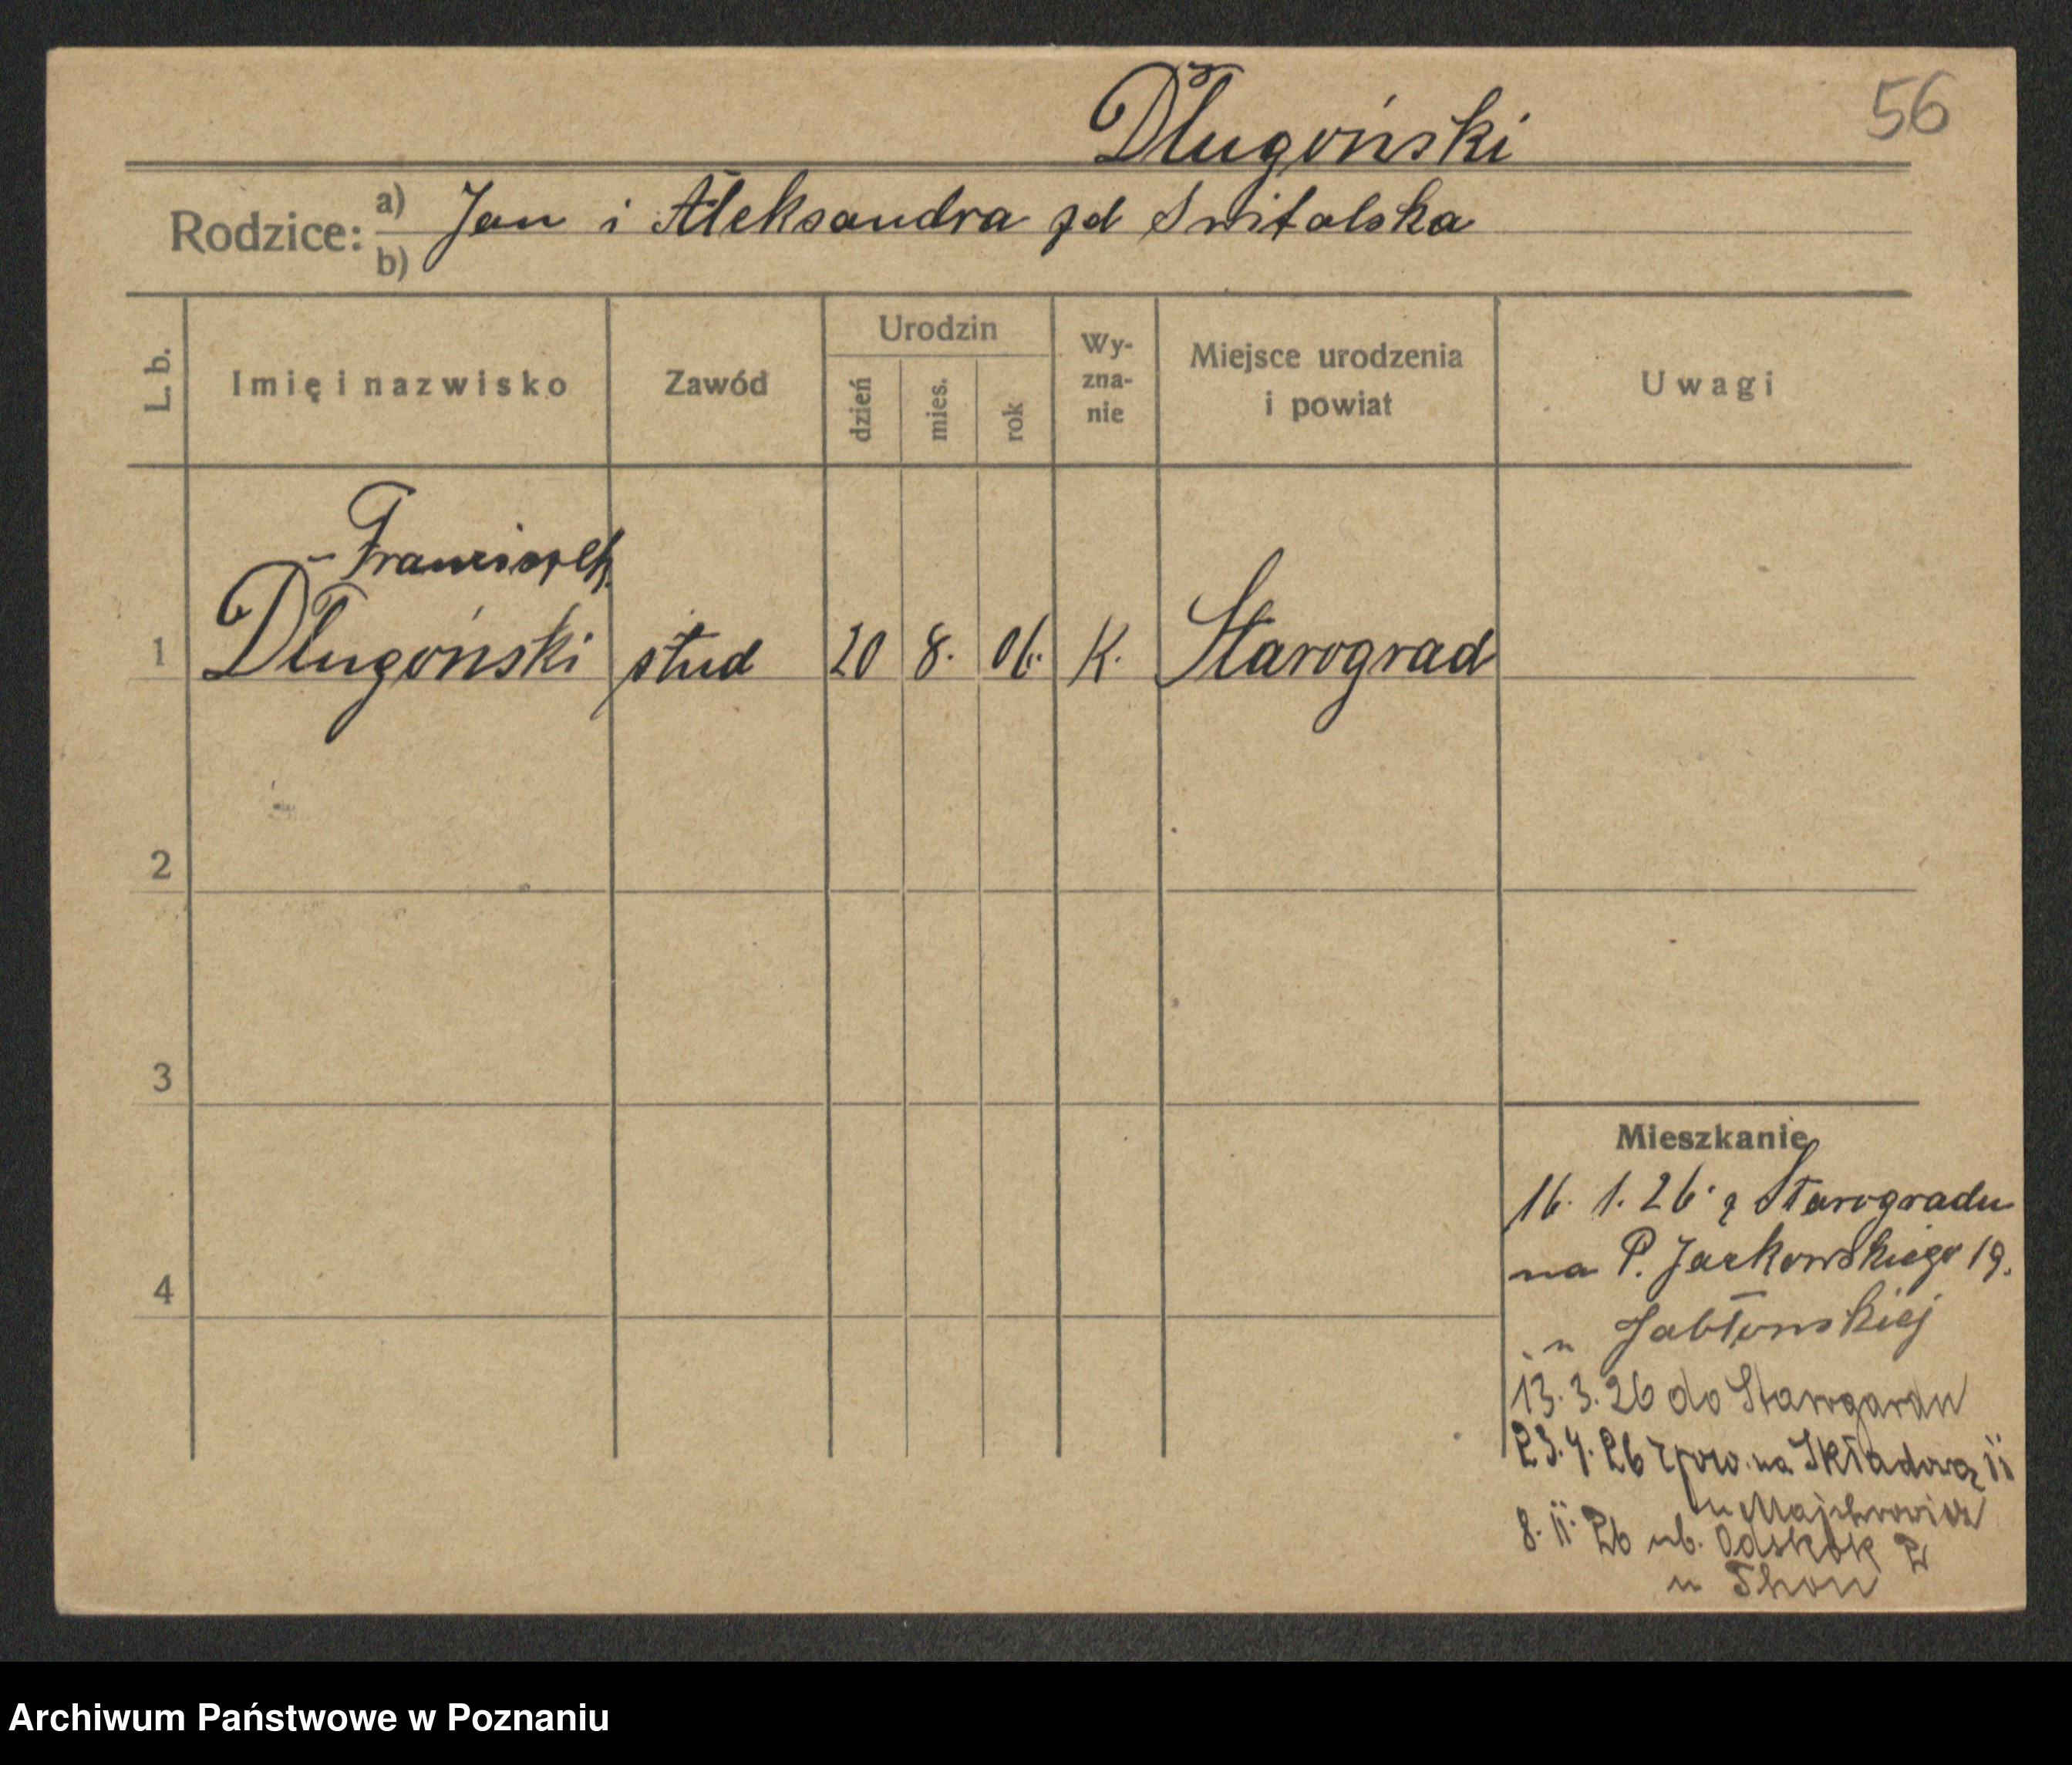 Długoński
56
Rodzice:
a) Jan i Aleksandra zd Switalska
b)
L. b.
Imię i nazwisko
Zawód
Urodzin
dzień
mies.
rok
Wy-
zna-
nie
Miejsce urodzenia
i powiat
Uwagi
Franciszek
1 Długoński stud 20 8. 06. K. Starograd
2
3
4
Mieszkanie
16. 1. 26. z Starogradu
na P. Jackowskiego 19.
u Jabłonskiej
13. 3. 26 do Starogardu
23. 4. 26 zpow. na Składową 11
u Majchrowicz
8. 11. 26 ub. Odskok 2
u Thon
Archiwum Państwowe w Poznaniu